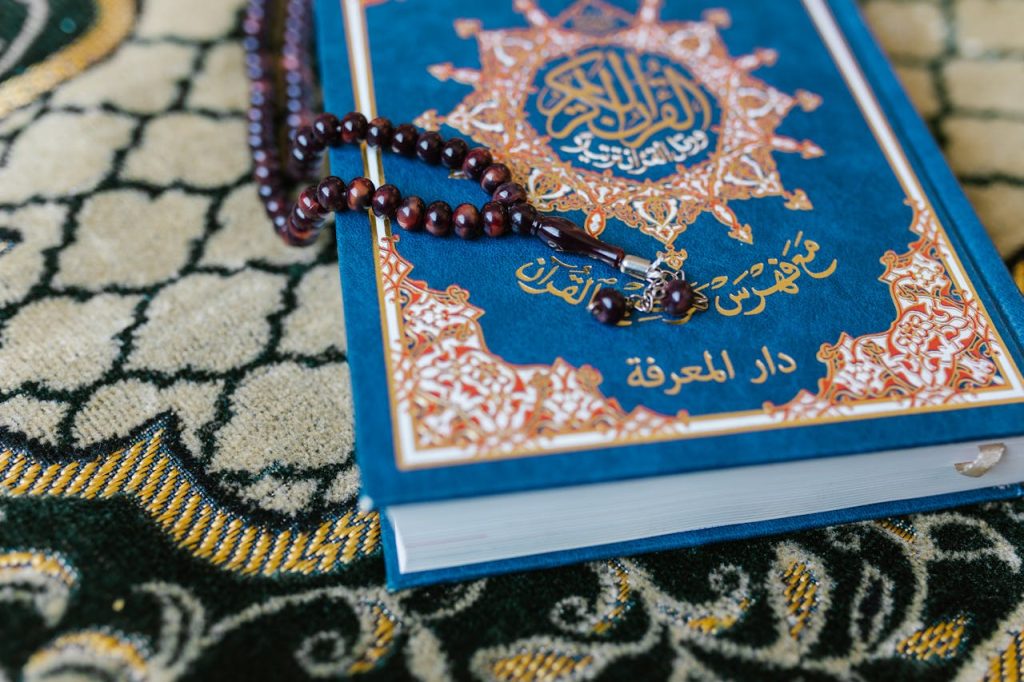 القرآن الكريم
ورتل القرآن ترتيلا
مع فهرس القرآن
دار المعرفة